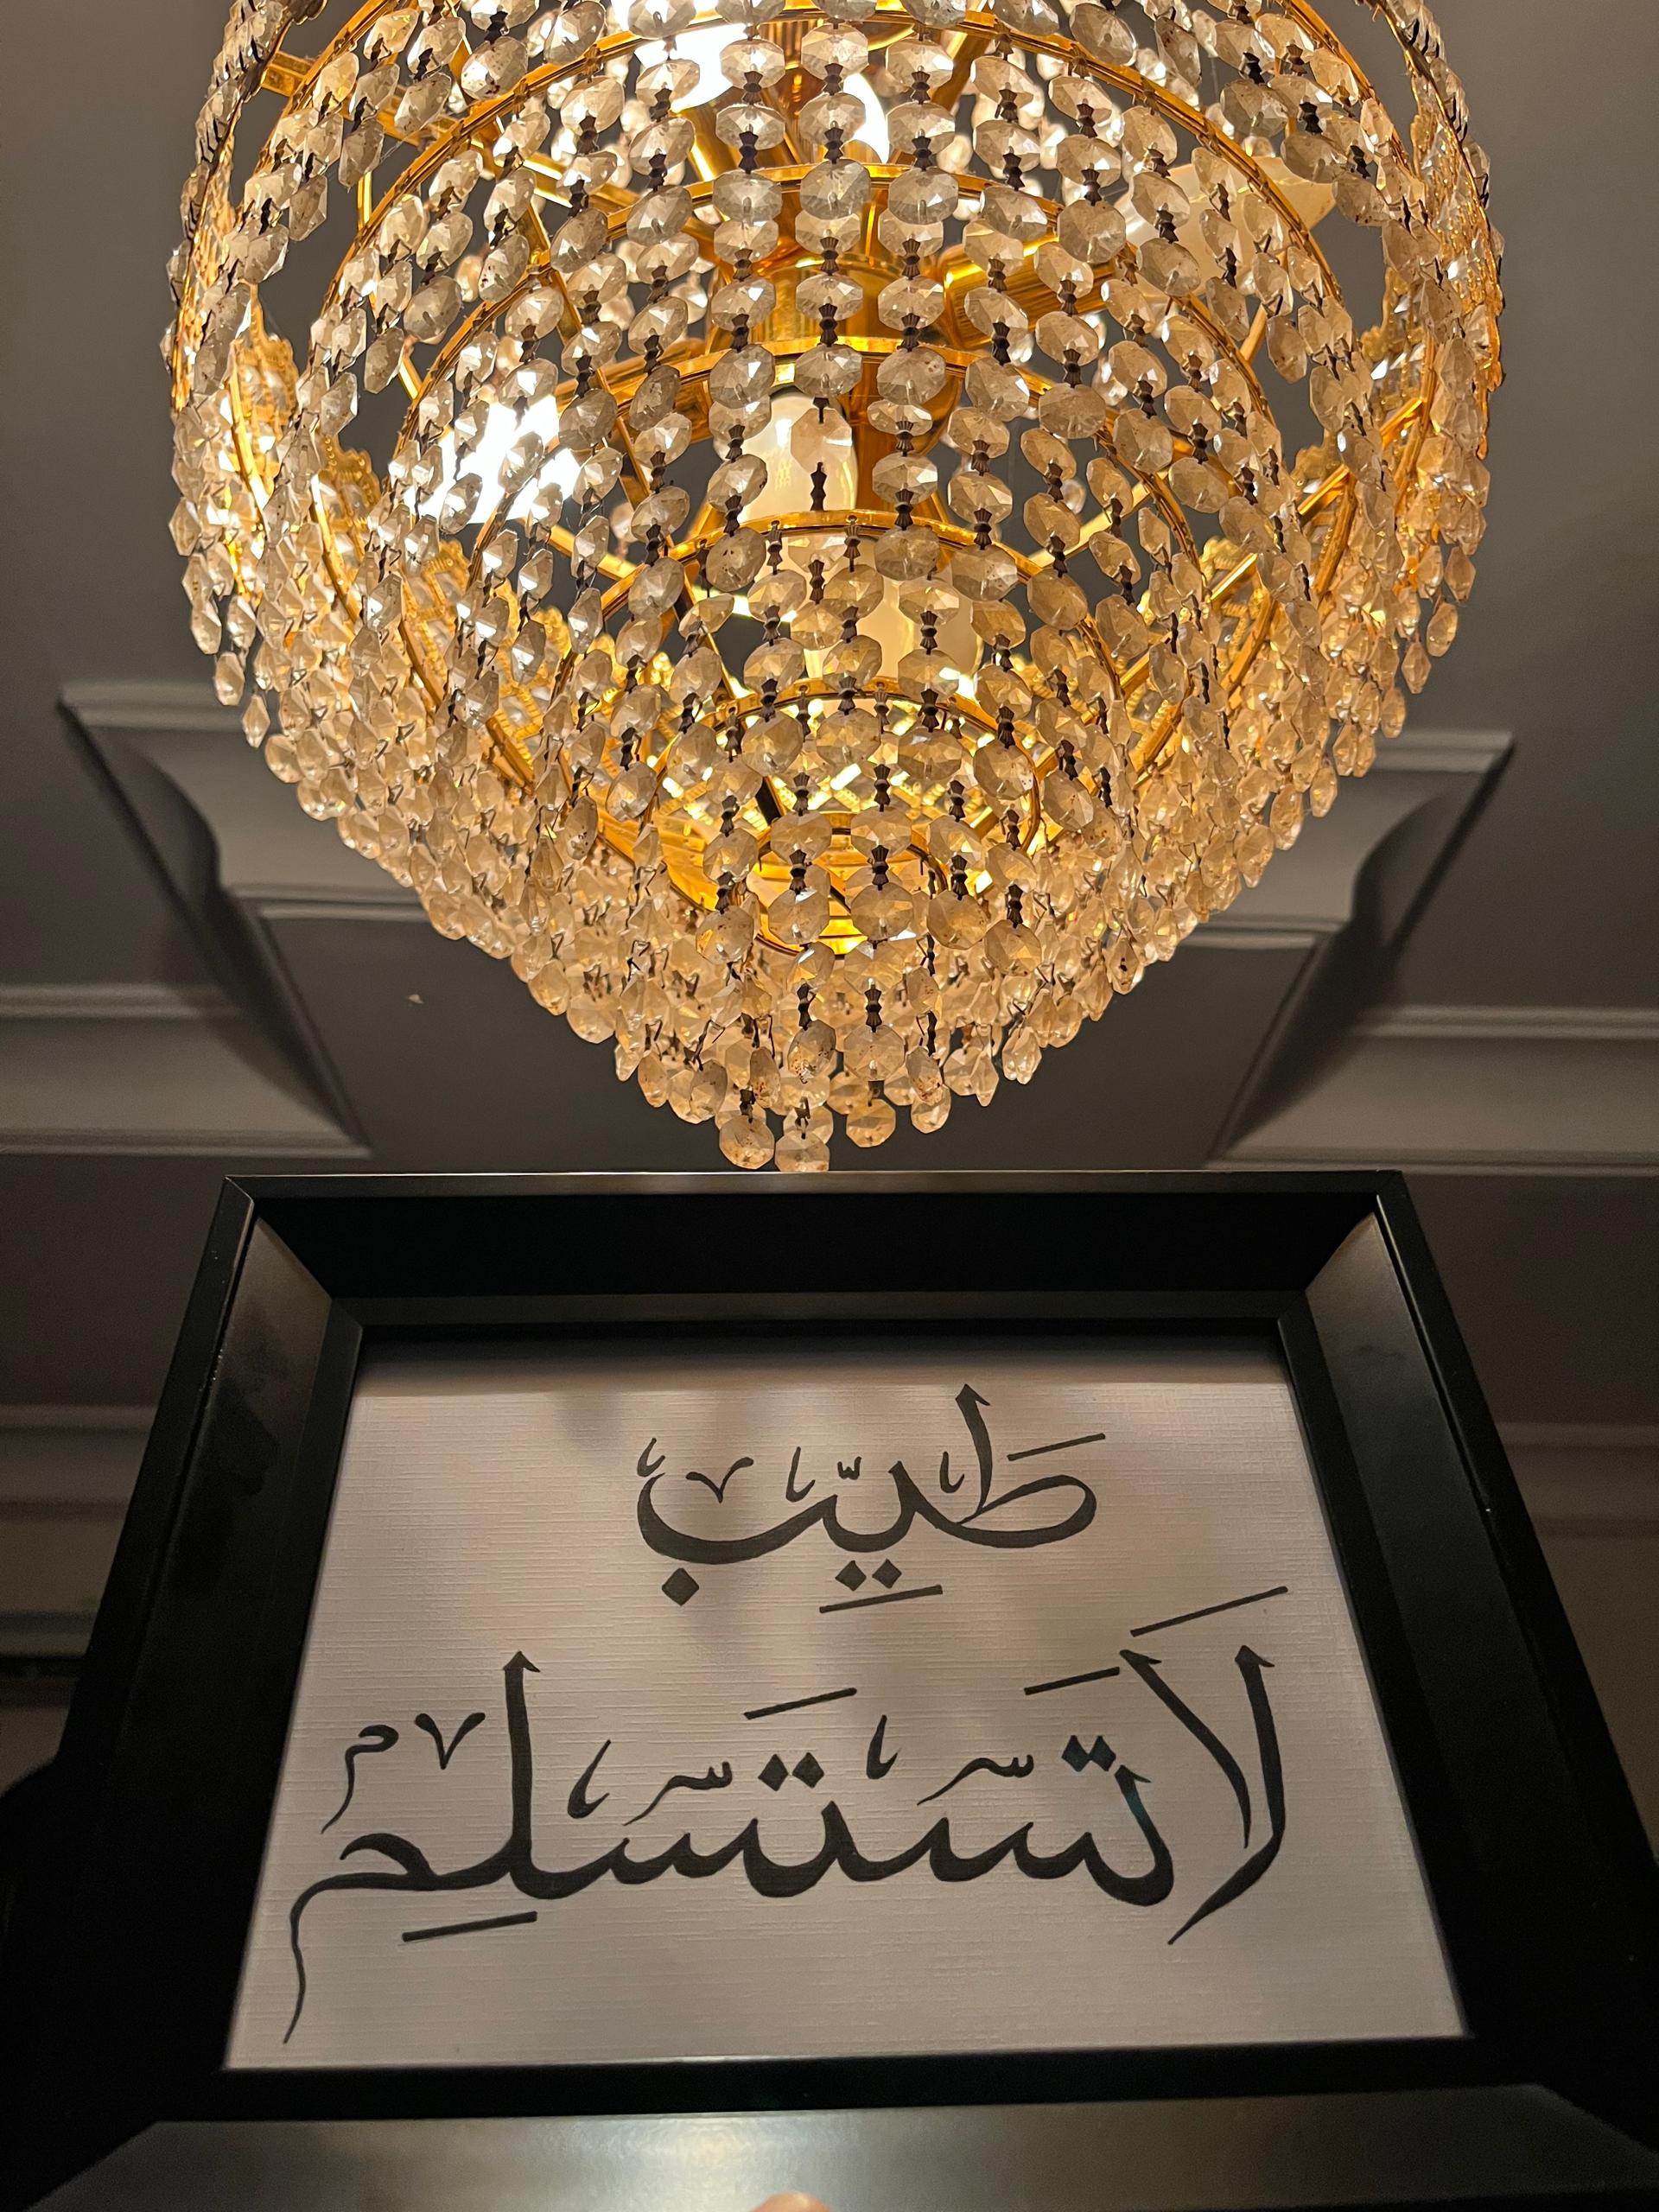 طَيِّب
لَا تَسْتَسْلِم